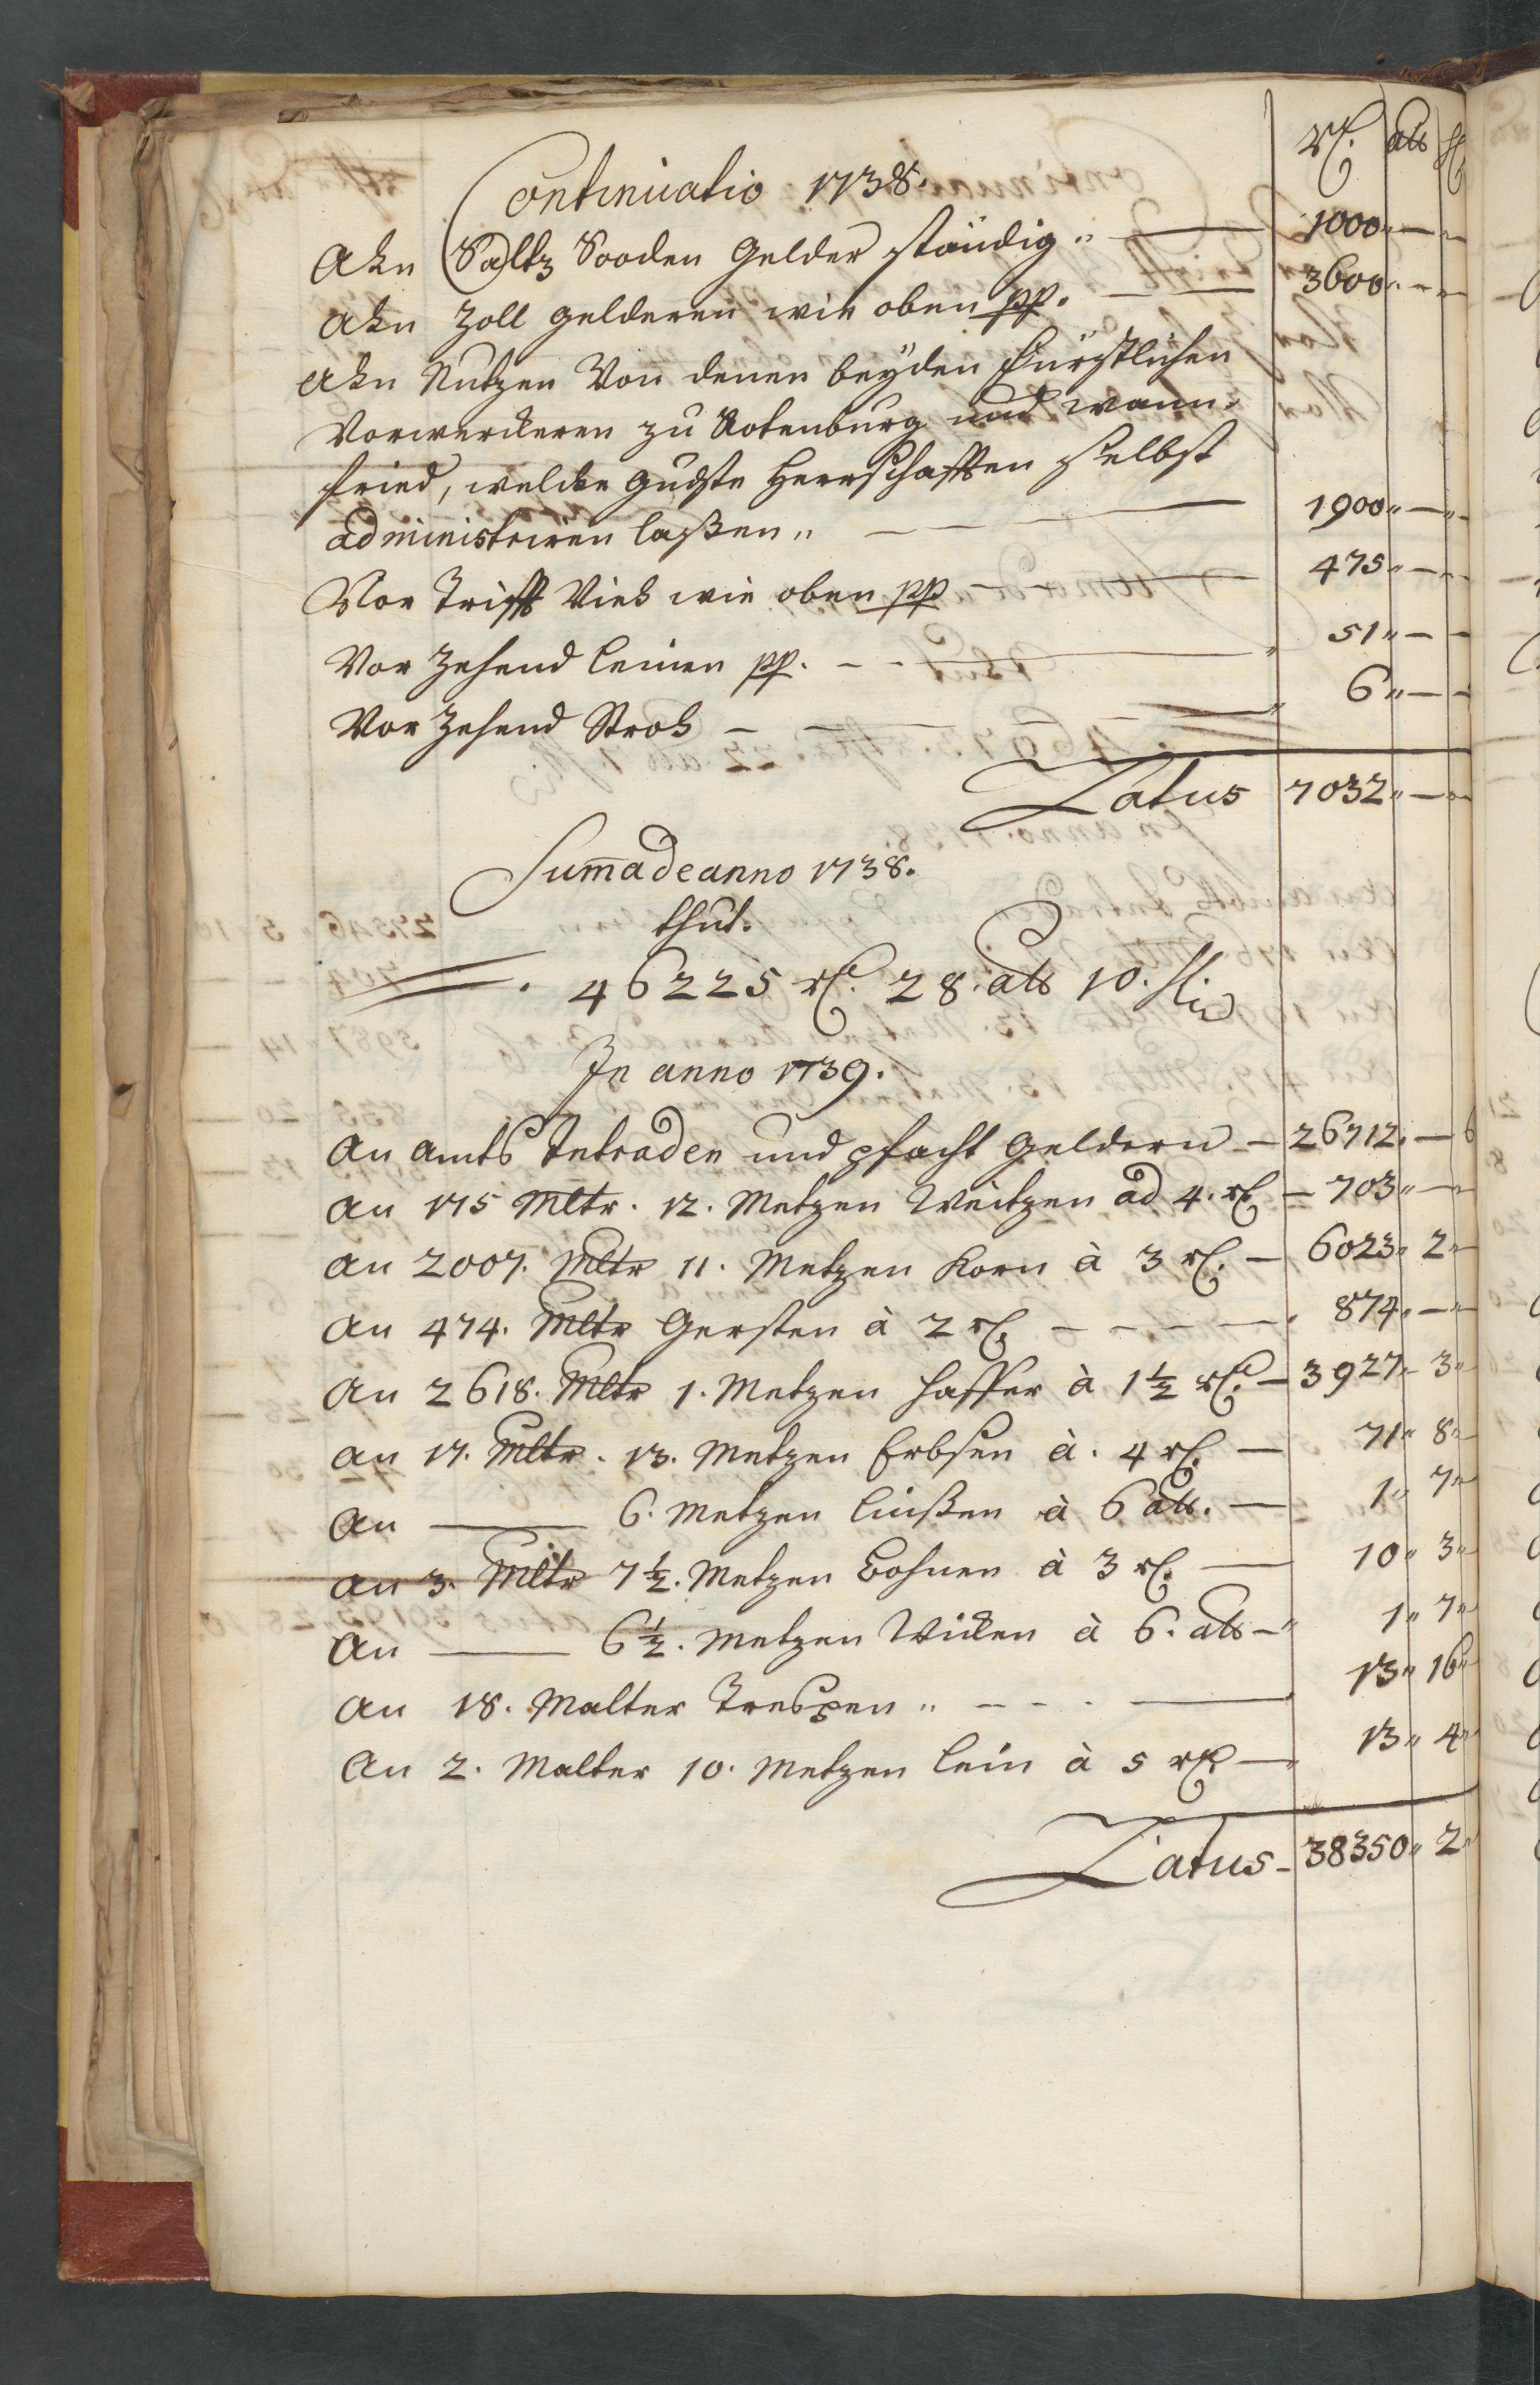 rt. alb hl
Continuatio 1738.
Ahn Saltz Sooden Gelder ständig „ — 1000 „ — „ —
Ahn Zoll gelderen wie oben pp. — 3600 „ — „ —
Ahn Nutzen Von denen beyden Fürstlichen
Vorwerckeren zu Rotenburg und Wann-
fried, welche gndste Herrschafften selbst
administriren laßen „ — 1900 „ — „ —
Vor Trifft Vieh wie oben pp — 475 „ — „ —
Vor Zehend leinen pp. — 51 „ — —
Vor Zehend Stroh — 6 „ — —
Latus 7032 „ — „ —
Suma de anno 1738.
thut.
46225 rt. 28. alb 10. hl
In anno 1739.
An Ambts Intraden und pfacht Geldern — 26712. — 6
An 175 Mltr. 12. Metzen Weitzen ad 4. rt — 703 „ —
An 2007. Mltr 11. Metzen Korn à 3 rt. — 6023 „ 2 „
An 474. Mltr Gersten à 2 rt — 874 „ — „
An 2618. Mltr 1. Metzen Haffer à 1½ rt. — 3927 „ 3 „
An 17. Mltr. 13. Metzen Erbsen à. 4 rt. — 71 „ 8 „
An — 6. Metzen Linßen à 6 alb. — 1 „ 7 „
An 3. Mltr 7½. Metzen Bohnen à 3 rt. — 10 „ 3 „
An — 6½. Metzen Wicken à 6. alb — 1 „ 7 „
An 18. Malter Trespen „ — 13 „ 16 „
An 2. Malter 10. Metzen Lein à 5 rt — 13 „ 4 „
Latus — 38350 „ 2 „